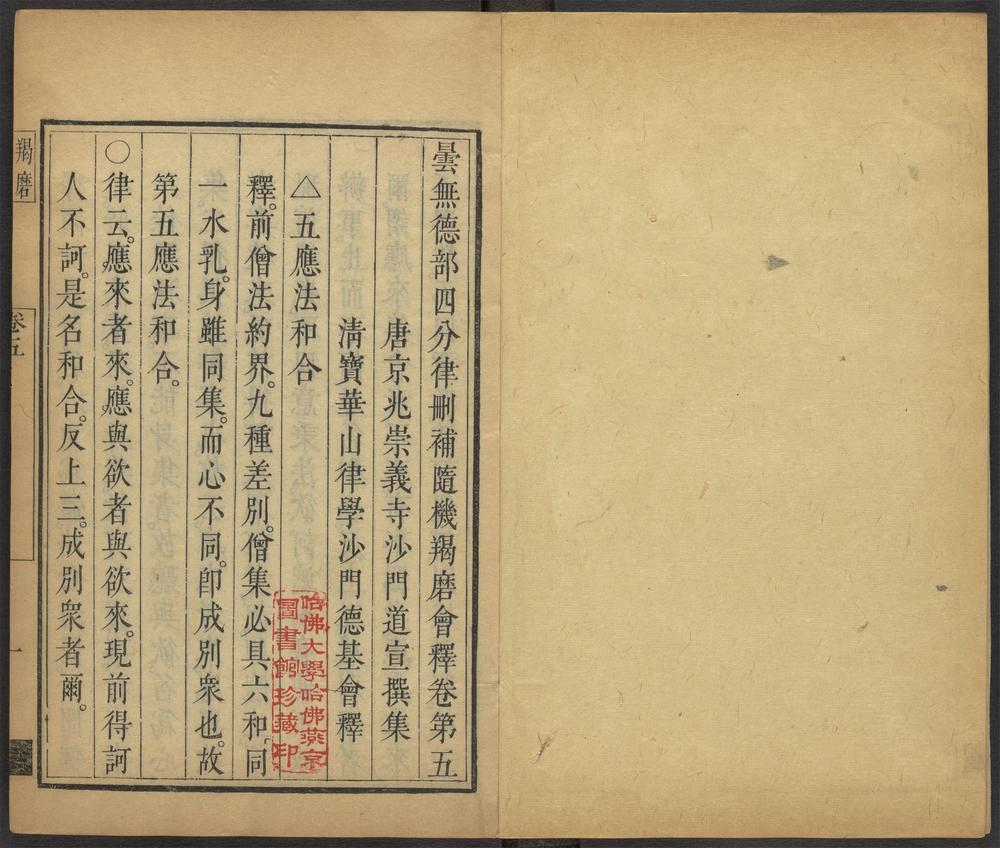 曇無德部四分律刪補隨機羯磨會釋卷第五
唐京兆崇義寺沙門道宣撰集
清寶華山律學沙門德基會釋
△五應法和合
釋。前僧法約界。九種差別。僧集必具六和。同
一水乳。身雖同集。而心不同。卽成別衆也。故
第五應法和合。
○律云。應來者來。應與欲者與欲來。現前得訶
人不訶。是名和合。反上三。成別衆者爾。
羯磨
卷五
一
哈佛大學哈佛燕京
圖書館珍藏印